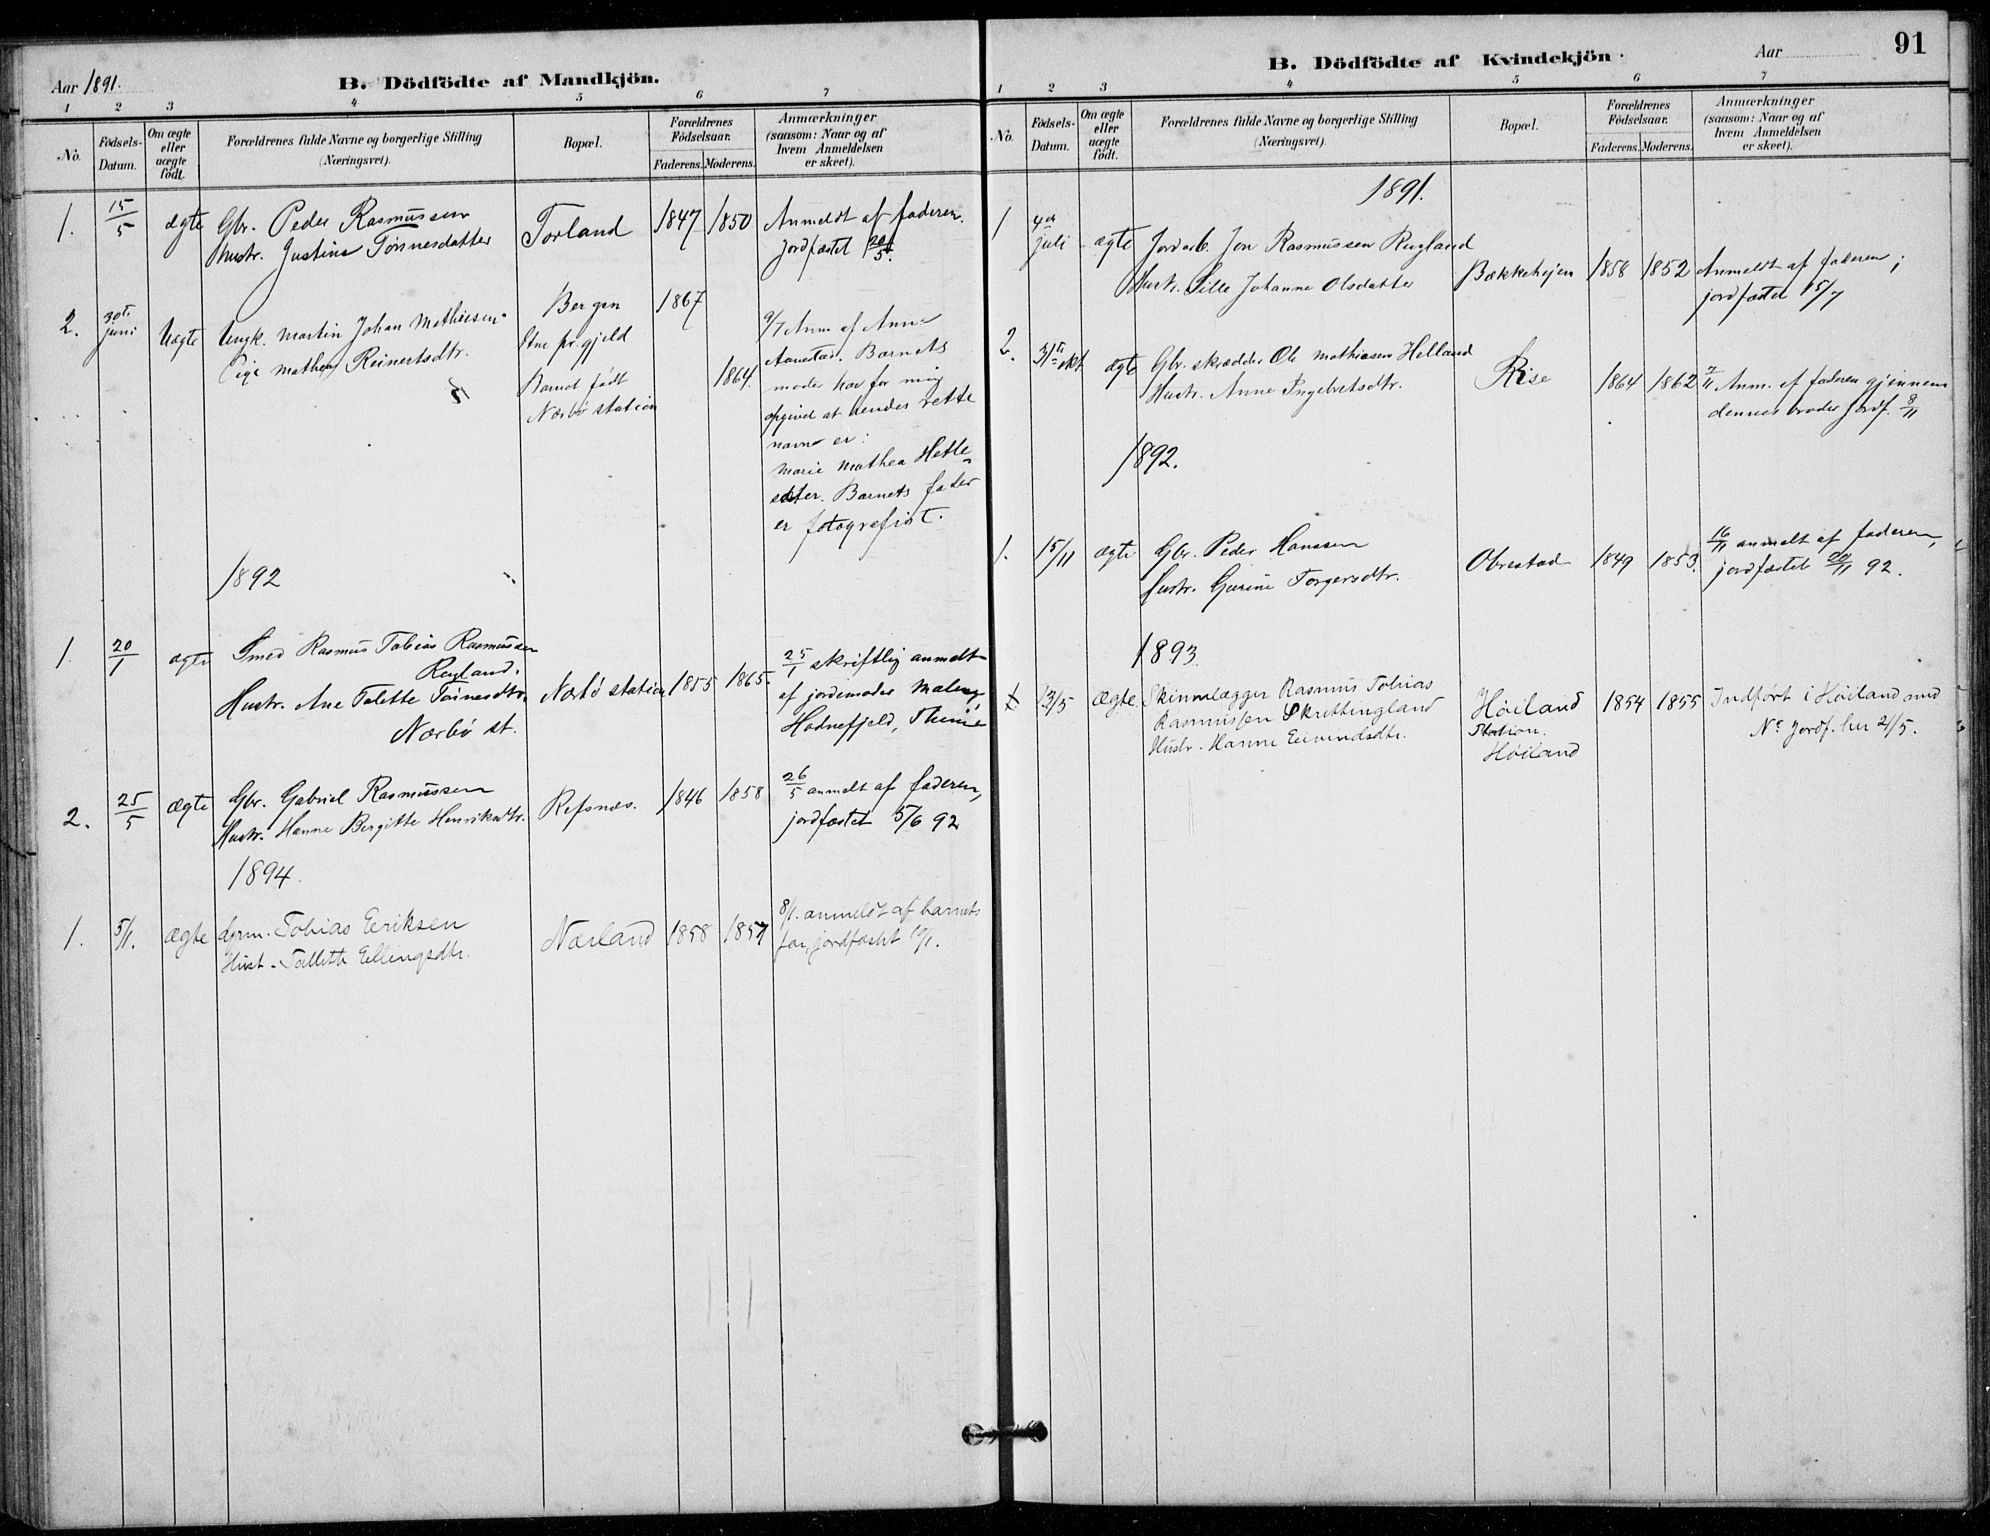 Aar 1891.
B. Dödfödte af Mandkjön.
1 2 3 4 5 6 7
No.
Födsels-Datum.
Om ægte eller uægte födt.
Forældrenes fulde Navne og borgerlige Stilling
(Næringsvei).
Bopæl.
Forældrenes Födselsaar.
Faderens. Moderens.
Anmærkninger
(saasom: Naar og af
hvem Anmeldelsen
er skeet).
1. 15/5 ægte Gbr. Peder Rasmussen Torland 1847 1850 Anmeldt af faderen.
Hustr. Justine Tønnesdatter jordfæstet 20/5.
2. 30te juni Uægte Ungk. Martin Johan Mathiesen Bergen 1867 9/7 Anm. af Anne
Pige Mathea Reinertsdtr. Etne pr.gjeld 1864. Aanestad. Barnets
Barnet født moder har for mig
Nærbø station opgivet at hendes rette
navn er:
Marie Mathea Hette-
sæter. Barnets fader
er fotografist.
1892
1. 20/1 ægte Smed Rasmus Tobias Rasmussen
Reyland.
Hustr. Ane Talette Tønnesdtr. Nærbø station 1855 1865. 25/1 skriftlig anmeldt
af jordemoder Malene
Nærbø st. Hodnefjeld, Thime
2. 25/5 Ægte Gbr. Gabriel Rasmussen Refsnæs. 1846 1858 26/5 anmelt af faderen,
Hustr. Hanne Bergitte Henriksdtr. jordfæstet 5/6 92
1894.
1. 5/1. Ægte Tobias Eriksen Nærland 1858 1857 8/1. anmeldt af barnets
Hust. Tallette Ellingsdtr. far, jordfæstet 10/1.
B. Dödfödte af Kvindekjön.
Aar
91
1 2 3 4 5 6 7
No.
Födsels-Datum.
Om ægte eller uægte födt.
Forældrenes fulde Navne og borgerlige Stilling
(Næringsvei).
Bopæl.
Forældrenes Födselsaar.
Faderens. Moderens.
Anmærkninger
(saasom: Naar og af
hvem Anmeldelsen
er skeet).
1891.
1 4de juli ægte Jordarb. Jon Rasmussen Rugland
Hustr. Sille Johanne Olsdatter Bækkehejen 1858 1852 Anmeldt af faderen;
jordfæstet 15/7
2. 31te okt ægte Gbr. skrædder Ole Mathiasen Helland
Hustr. Anne Ingebretsdtr. Rise 1864 1862 2/11 Anm. af faderen gjennem
dennes broder Jordf. 8/11
1892.
1. 15/11 ægte Gbr. Peder Hanssen Obrestad 1849 1853. 16/11 anmelt af faderen,
Hustr. Gurine Torgersdtr. jordfæstet 22/11 92.
1893.
13/5 Ægte Skinnelægger Rasmus Tobias Høiland 1854 1855 Indført i Høiland med
Rasmussen Skrettingland Station. No Jordf. her 21/5.
Hustr. Hanne Eivindsdtr. Høiland